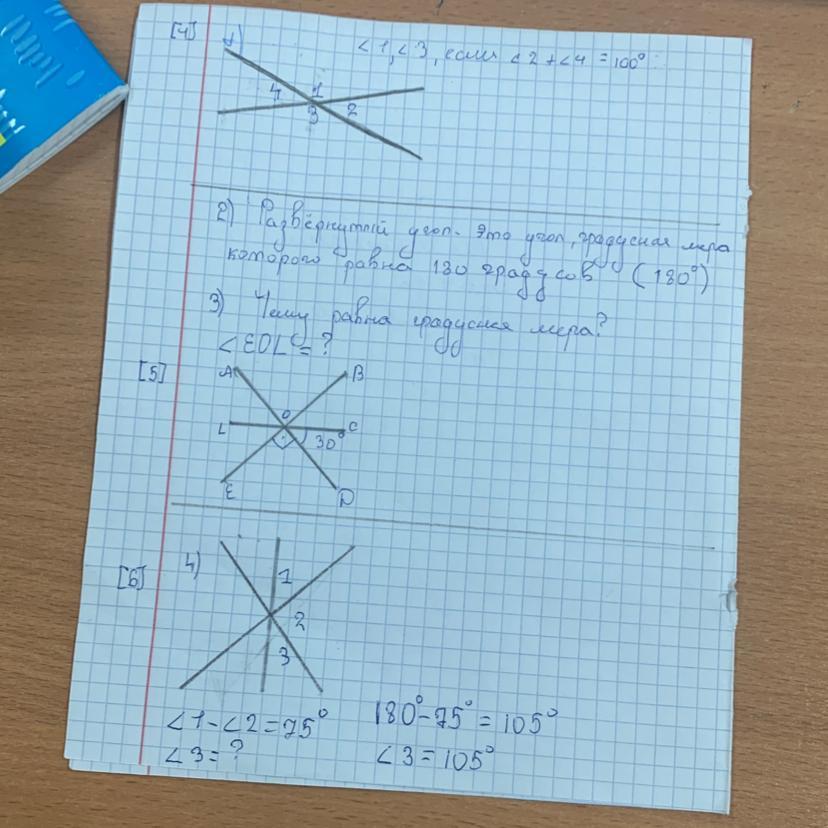 [4] 1) ∠1,∠3, если ∠2+∠4=100°.
4 1
3 2
2) Развёрнутый угол. Это угол, градусная мера
которого равна 180 градусов (180°)
3) Чему равна градусная мера?
∠EOL=?
[5] A B
O
L C
30°
E D
[6] 4)
1
2
3
∠1-∠2=75° 180°-75°=105°
∠3=? ∠3=105°